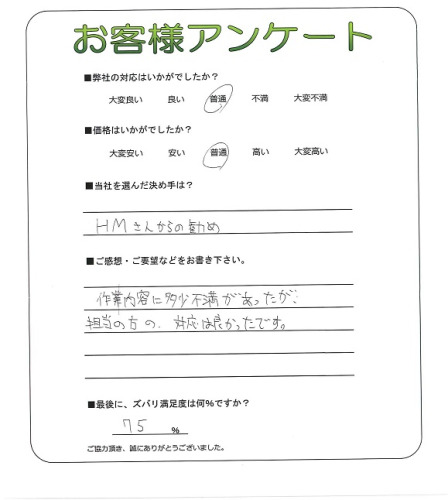 お客様アンケート
■弊社の対応はいかがでしたか？
大変良い 良い 普通 不満 大変不満
■価格はいかがでしたか？
大変安い 安い 普通 高い 大変高い
■当社を選んだ決め手は？
HMさんからの勧め
■ご感想・ご要望などをお書き下さい。
作業内容に多少不満があったが、
担当の方の、対応は良かったです。
■最後に、ズバリ満足度は何%ですか？
75 %
ご協力頂き、誠にありがとうございました。